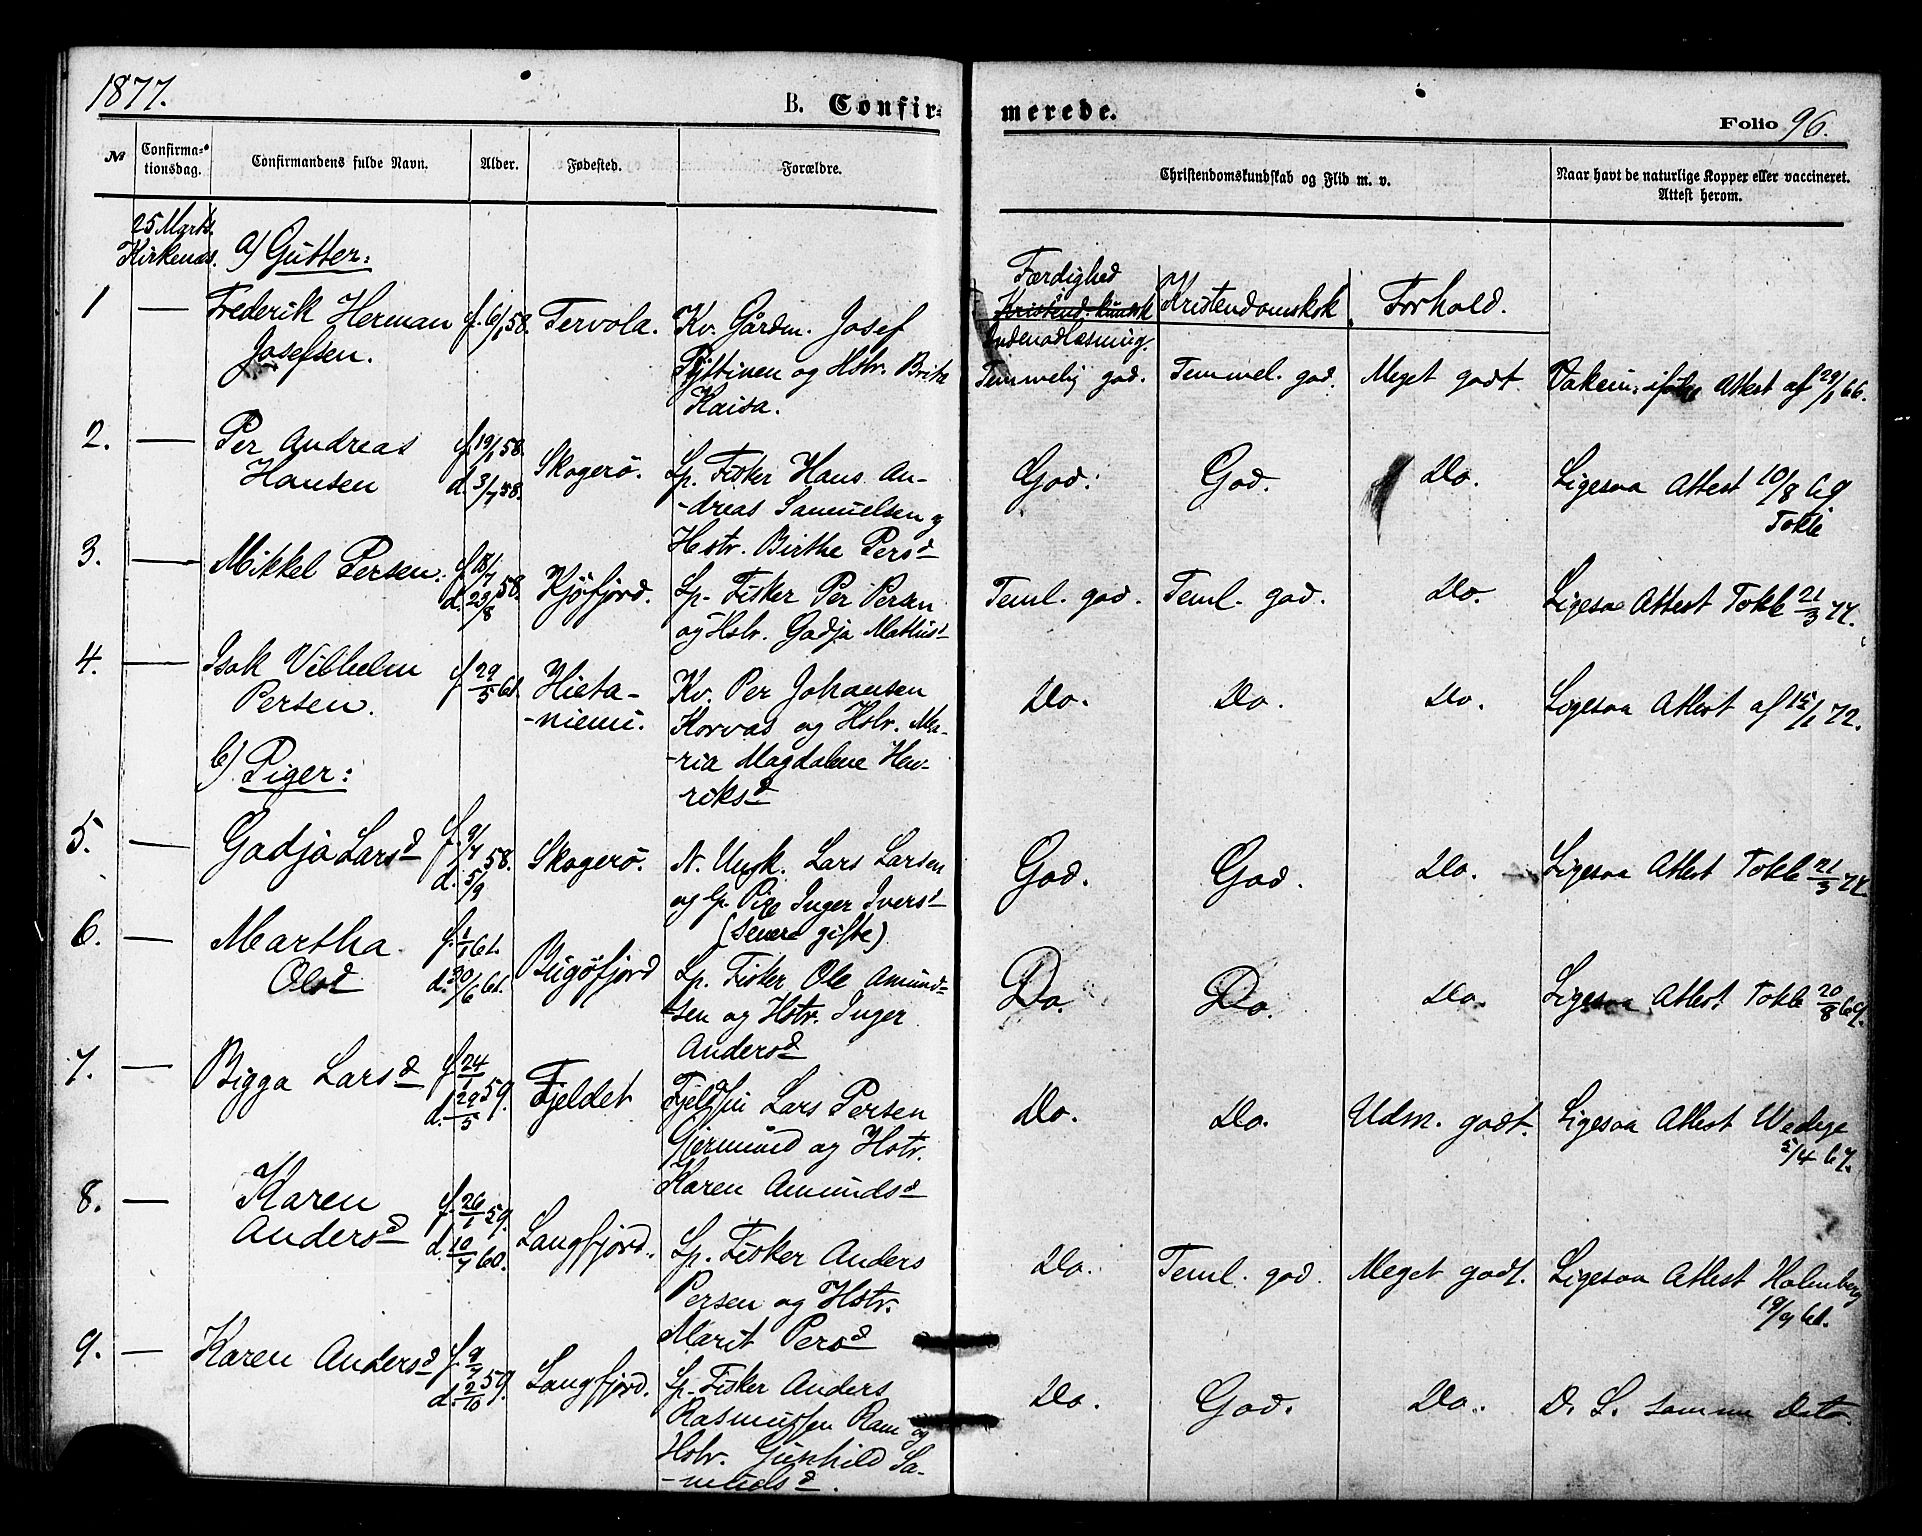 1877.
B. Confir-
merede.
Folio 96.
№
Confirma-
tionsdag.
Confirmandens fulde Navn.
Alder.
Fødested.
Forældre.
Christendomskundskab og Flid m. v.
Naar havt de naturlige Kopper eller vaccineret.
Attest herom.
25 Marts.
Kirkenæs.
a) Gutter:
Færdighed
Kristend. kundsk
Indenadlæsning.
Kristendomskdsk
Forhold.
1 —
Frederik Herman
Josefsen.
f. 6/1 58.
Tervola.
Kv. Gårdm. Josef
og Hstr. Brita
Kaisa.
Temmelig god.
Temmel. god.
Meget godt.
Vakcin. ifølge Attest af 29/1 66.
2. —
Per Andreas
Hansen
f. 19/1 58.
d. 3/7 58.
Skogerö.
Lp. Fisker Hans An-
-dreas Samuelsen og
Hstr. Birthe Persd
God.
God.
Do.
Ligesaa Attest 10/8 69
Tokle
3. —
Mikkel Persen.
f. 18/7
d. 29/8 58.
Kjöfjord.
Lp. Fisker Per Persen
og Hstr. Gadja Mathisd
Teml. god.
Teml. god.
Do.
Ligesaa Attest Tokle 21/3 77.
4. —
Isak Vilhelm
Persen.
f. 29/5 61.
Hieta-
-niemi.
Kv. Per Johansen
Korvas og Hstr. Ma-
-ria Magdalene Hen-
riksd
Do.
Do.
Do.
Ligesaa Attest af 15/1 72.
b) Piger:
5. —
Gadja Larsd
f. 9/7
d. 5/9 58.
Skogerö.
N. Ungk. Lars Larsen
og P. Pige Inger Iversd
(senere gifte)
God.
God.
Do.
Ligesaa Attest Tokle 21/3 77.
6. —
Martha
Olsd
f. 1/1 61.
d. 30/6 61.
Bugöfjord
Lp. Fisker Ole Amund-
sen og Hstr. Inger
Andersd
Do.
Do.
Do.
Ligesaa Attest Tokle 20/8 69.
7. —
Bigga Larsd
f. 24/1
d. 29/5 59.
Fjeldet
Fjeldfin Lars Persen
Gjermund og Hstr.
Karen Amundsd
Do.
Do.
Udm. godt.
Ligesaa Attest Wedege
5/4 67.
8. —
Karen
Andersd
f. 26/1 59.
d. 10/7 60.
Langfjord.
Lp. Fisker Anders
Persen og Hstr.
Marit Persd
Do.
Teml. god.
Meget godt.
Ligesaa Attest Holmberg
19/9 61.
9. —
Karen Andersd
f. 9/7
d. 2/10 59.
Langfjord.
Lp. Fisker Anders
Rasmussen Ram og
Hstr. Gunhild Sa-
-muelsd.
Do.
God.
Do.
D. L. samme Dato.